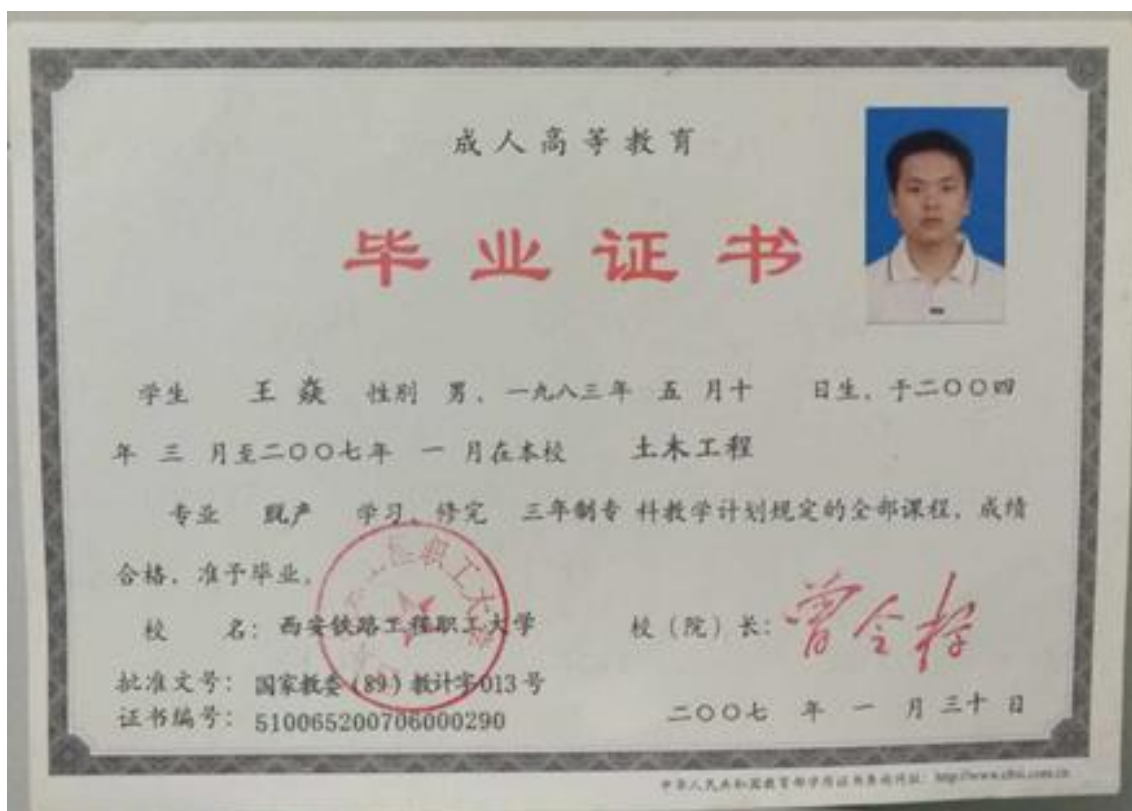 成人高等教育
毕业证书
学生 王焱 性别 男，一九八三年 五 月十 日生，于二〇〇四
年 三 月至二〇〇七年 一 月在本校 土木工程
专业 脱产 学习，修完 三年制专 科教学计划规定的全部课程，成绩
合格，准予毕业。
工程职工大学
校 名：西安铁路工程职工大学 校（院）长：曾令
批准文号：国家教委（89）教计字013号
证书编号：510065200706000290 二〇〇七 年 一 月 三十 日
中华人民共和国教育部学历证书查询网址：http://www.chsi.com.cn